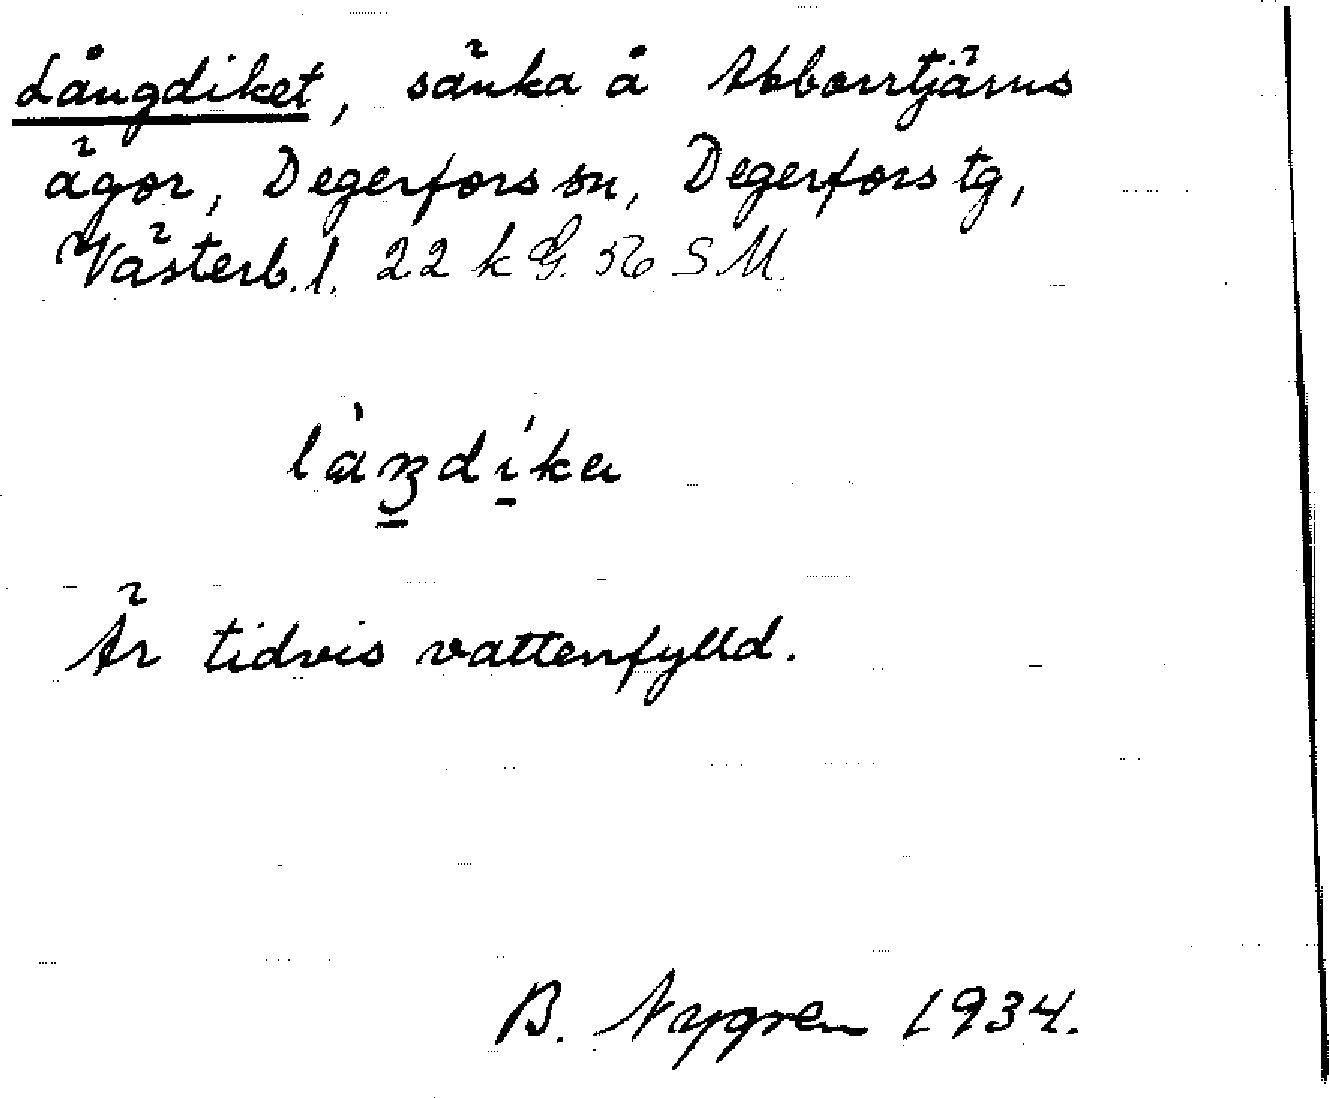 Långdiket, sänka å Abborrtjärns
ägor, Degerfors sn, Degerfors tg,
Västerb. l. 22 k G. 56 S M.
Är tidvis vattenfylld.
B. Nygren 1934.